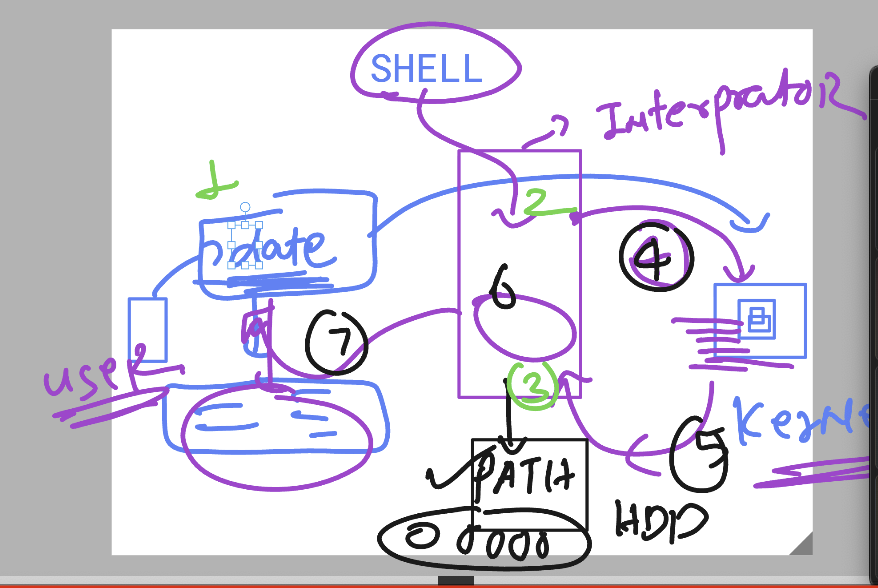 SHELL
Interprator
1
2
date
4
6
7
user
3
5
Kerne
PATH
HDD